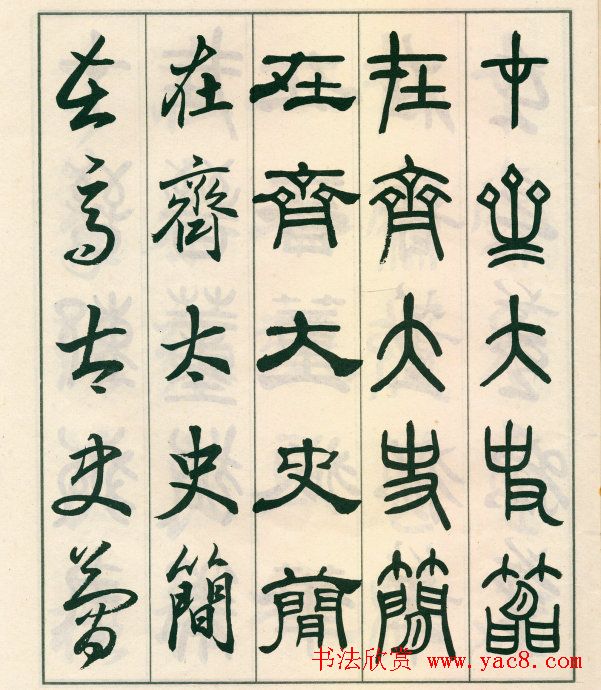 在齊大史簡
在齊大史簡
在齊大史簡
在齊太史簡
在齊太史簡
书法欣赏 www.yac8.com